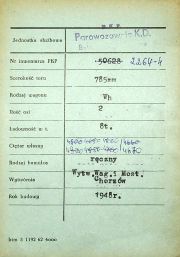 P K P
Jednostka służbowa
Parowozownia K.D.
Nr inwentarza PKP
50628 2264-4
Szerokość toru
785mm
Rodzaj wagonu
Wh
Ilość osi
2
Ładowność w t.
8t.
Ciężar własny
Rodzaj hamulca
ręczny
Wytwórnia
Wytw.Wag.i Most.
Chorzów
Rok budowy
1948r.